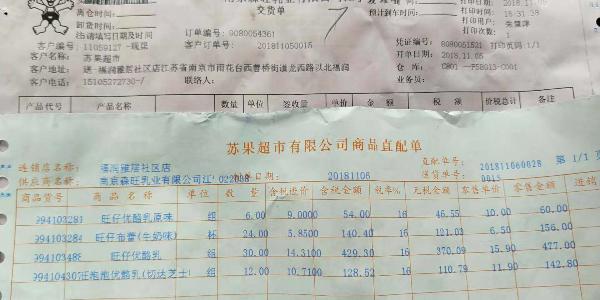 交货单
离仓时间:
卸货时间:
注:请填写日期及时间
打印时间: 18:31:39
打印用户:
打印次数: 1
订单编号: 9080054361
客户编号: 11059127 -现渠
客户订单: 201811050015
凭证编号: 8080051521 打印页码: 1/1
客户名称: 苏果超市
客户地址: 送-福润雅居社区店江苏省南京市雨花台西善桥街道龙西路以北福润
客户电话: 15105272730-/
联系人:
业务员:
产品代号 产品名称 数量 单位 签收量 单价 金额 税额 价税总计 备注
苏果超市有限公司商品直配单
连锁店名称: 福润雅居社区店
直配单号: 201811060028 第 1/1 页
供应商名称: 南京森旺乳业有限公司江
日期: 20181106
送货单号: 0015
商品货号 商品名称 单位 数量 含税进价 含税金额 税率% 无税金额 零售单价 零售金额 进销
旺仔优酪乳原味 组 6.00 9.0000 54.00 16 46.55 10.00 60.00
旺仔布蕾(牛奶味) 杯 24.00 5.8500 140.40 16 121.03 6.50 156.00
旺仔优酪乳 组 30.00 14.3100 429.30 16 370.09 15.90 477.00
旺泡泡优酪乳(切达芝士 组 12.00 10.7100 128.52 16 110.79 11.90 142.80